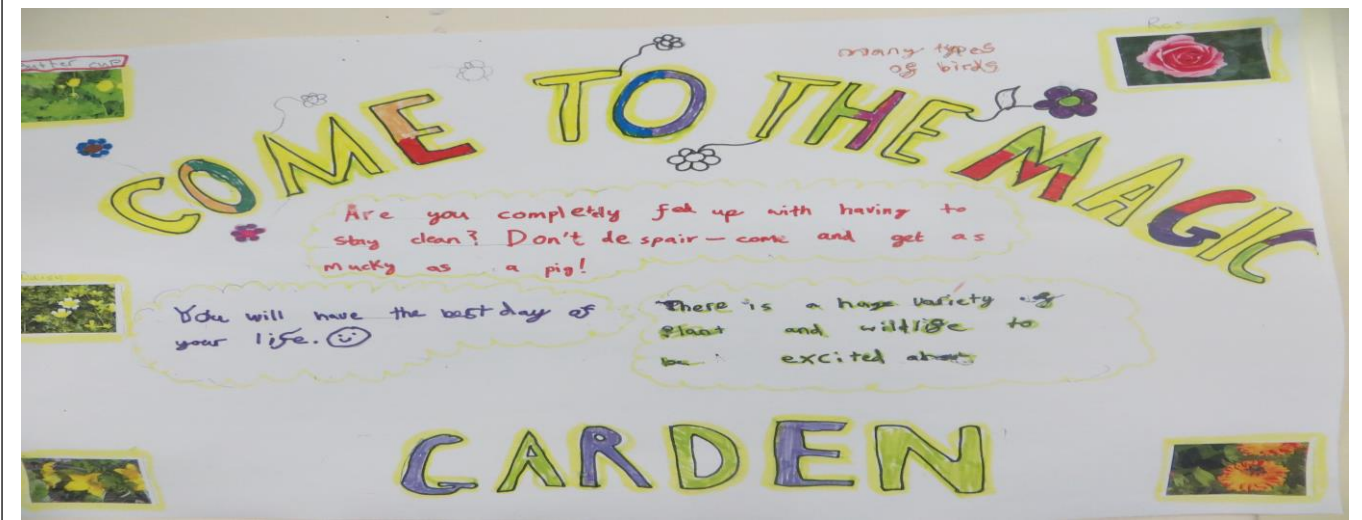 Butter cup
many types
of birds
COME TO THE MAGIC
Are you completdy fed up with having to
stay clean? Don't despair – come and get as
mucky as a pig!
You will have the best day of
your life.
There is a huge variety of
plant and wildlife to
be excited about
GARDEN